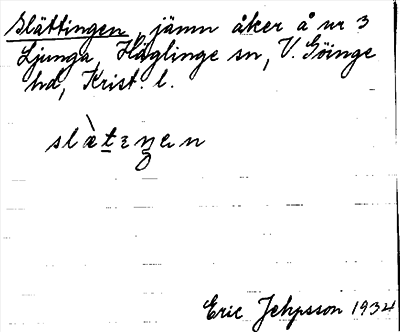 Slättingen, jämn åker å nr 3
Ljunga, Häglinge sn, V. Göinge
hd, Krist. l.
slæ̀tɛŋən
Eric Jehpsson 1934